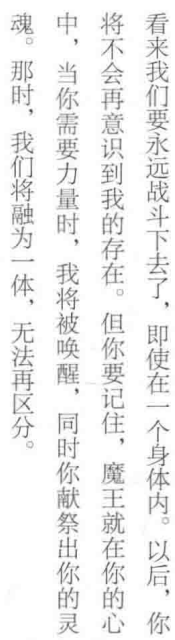 看来我们要永远战斗下去了，即使在一个身体内。以后，你
将不会再意识到我的存在。但你要记住，魔王就在你的心
中，当你需要力量时，我将被唤醒，同时你献祭出你的灵
魂。那时，我们将融为一体，无法再区分。